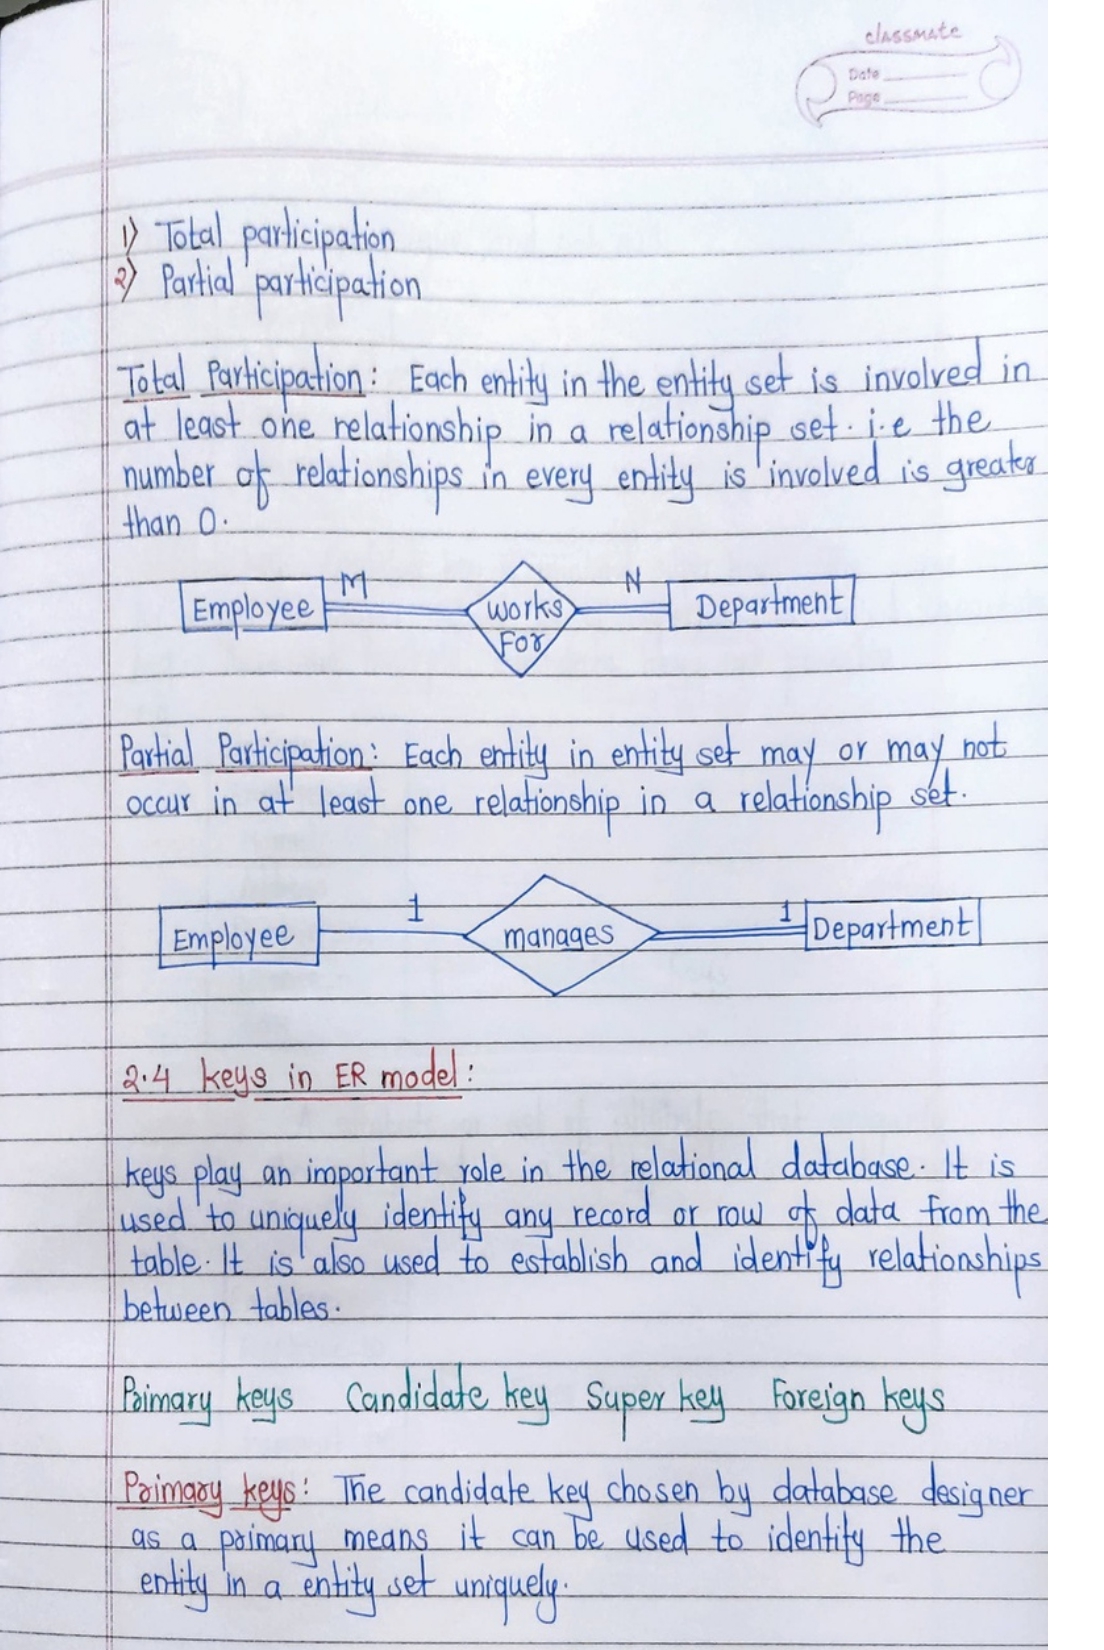 classmate
Date
Page
1) Total participation
2) Partial participation
Total Participation: Each entity in the entity set is involved in
at least one relationship in a relationship set. i.e the
number of relationships in every entity is involved is greater
than 0.
Employee M works For N Department
Partial Participation: Each entity in entity set may or may not
occur in at least one relationship in a relationship set.
Employee 1 manages 1 Department
2.4 keys in ER model:
keys play an important role in the relational database. It is
used to uniquely identify any record or row of data from the
table. It is also used to establish and identify relationships
between tables.
Primary keys Candidate key Super key Foreign keys
Primary keys: The candidate key chosen by database designer
as a primary means it can be used to identify the
entity in a entity set uniquely.